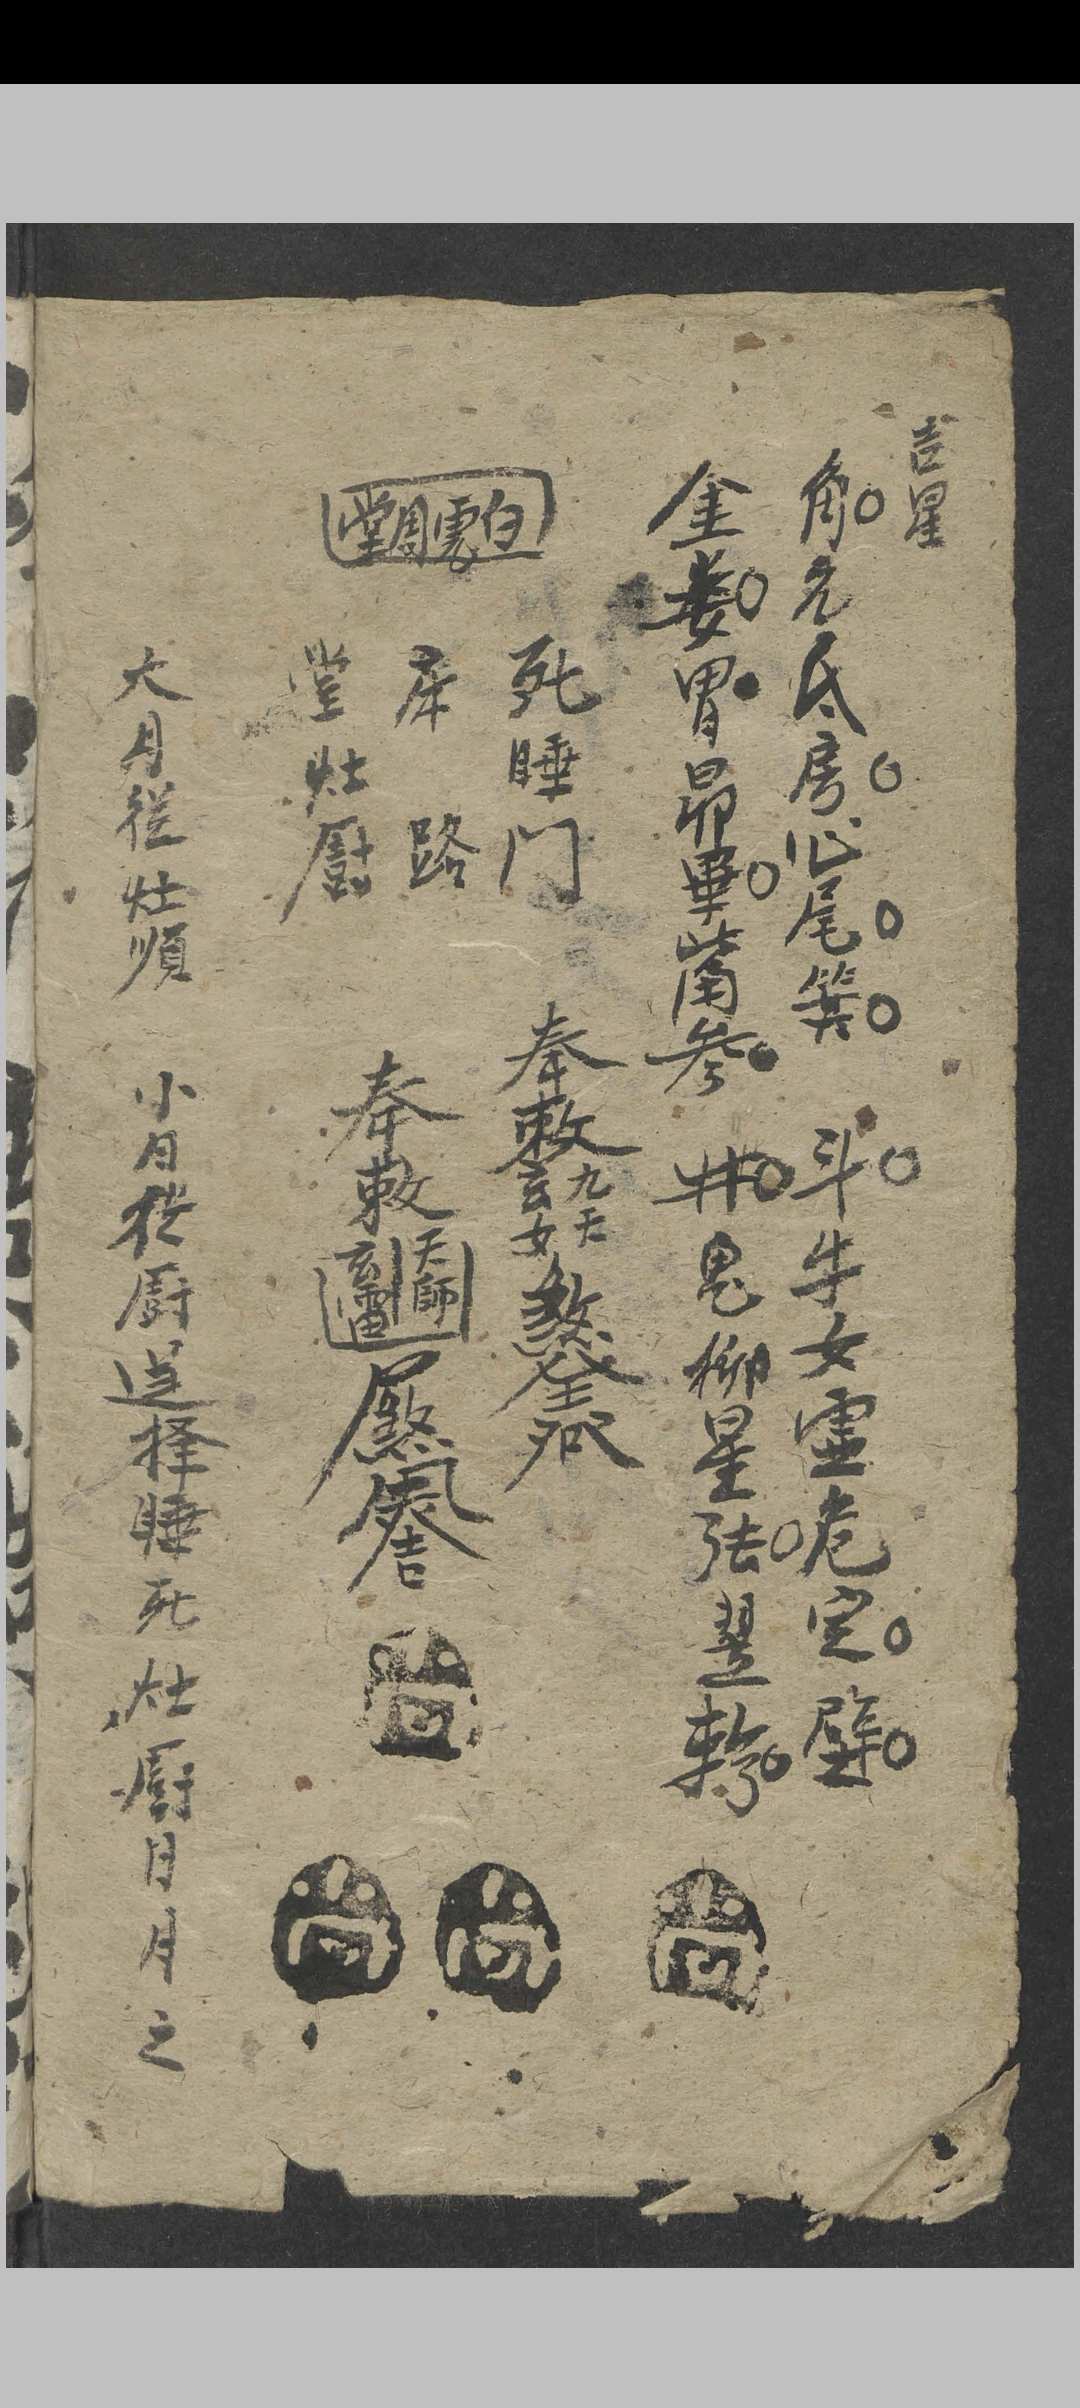 吉星
角亢氐房心尾箕 斗牛女虛危室壁
金婁胃昴畢觜參 井鬼柳星張翌軫
白虎周堂
死睡门
床 路
堂灶厨
奉敕九天玄女煞
奉敕天師
大月從灶順 小月從厨逆择睡死灶厨日月之